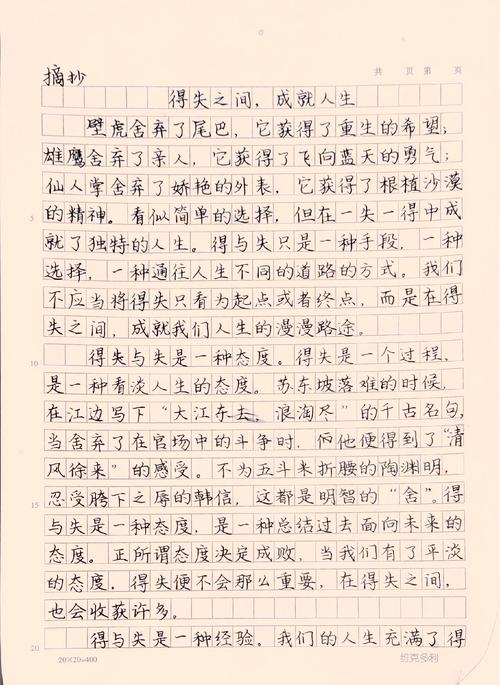 摘抄
共 页 第 页
得失之间，成就人生
壁虎舍弃了尾巴，它获得了重生的希望；
雄鹰舍弃了亲人，它获得了飞向蓝天的勇气；
仙人掌舍弃了娇艳的外表，它获得了根植沙漠
的精神。看似简单的选择，但在一失一得中成
5
就了独特的人生。得与失只是一种手段，一种
选择，一种通往人生不同的道路的方式。我们
不应当将得失只看为起点或者终点，而是在得
失之间，成就我们人生的漫漫路途。
10
得失与失是一种态度。得失是一个过程，
是一种看淡人生的态度。苏东坡落难的时候，
在江边写下“大江东去，浪淘尽”的千古名句，
当舍弃了在官场中的斗争时，他便得到了“清
风徐来”的感受。不为五斗米折腰的陶渊明，
15
忍受胯下之辱的韩信，这都是明智的“舍”。得
与失是一种态度，是一种总结过去面向未来的
态度。正所谓态度决定成败，当我们有了平淡
的态度，得失便不会那么重要，在得失之间，
也会收获许多。
20
得与失是一种经验。我们的人生充满了得
20×20=400
班克多利